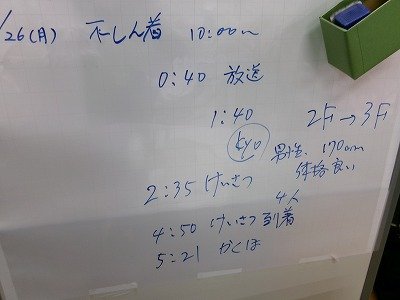 /26(月) 不しん着 10:00m
0:40 放送
1:40 2F→3F
540 男性、170cm
体格良い
2:35 けいさつ
4人
4:50 けいさつ到着
5:21 かくほ